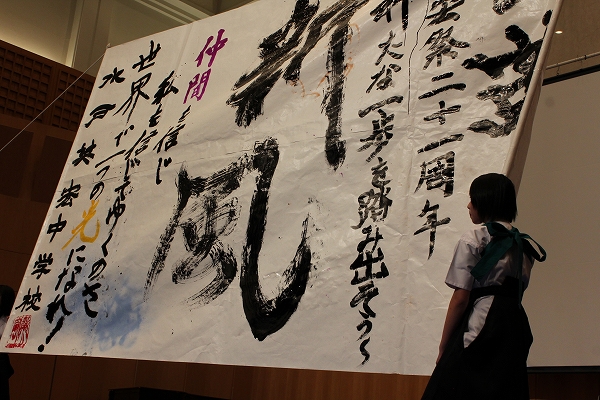 祭二十一周年
新たな一歩を踏み出そう〜
新風
仲間を信じ
私を信じてゆくのさ
世界で一つの光になれ!
水戸英宏中学校